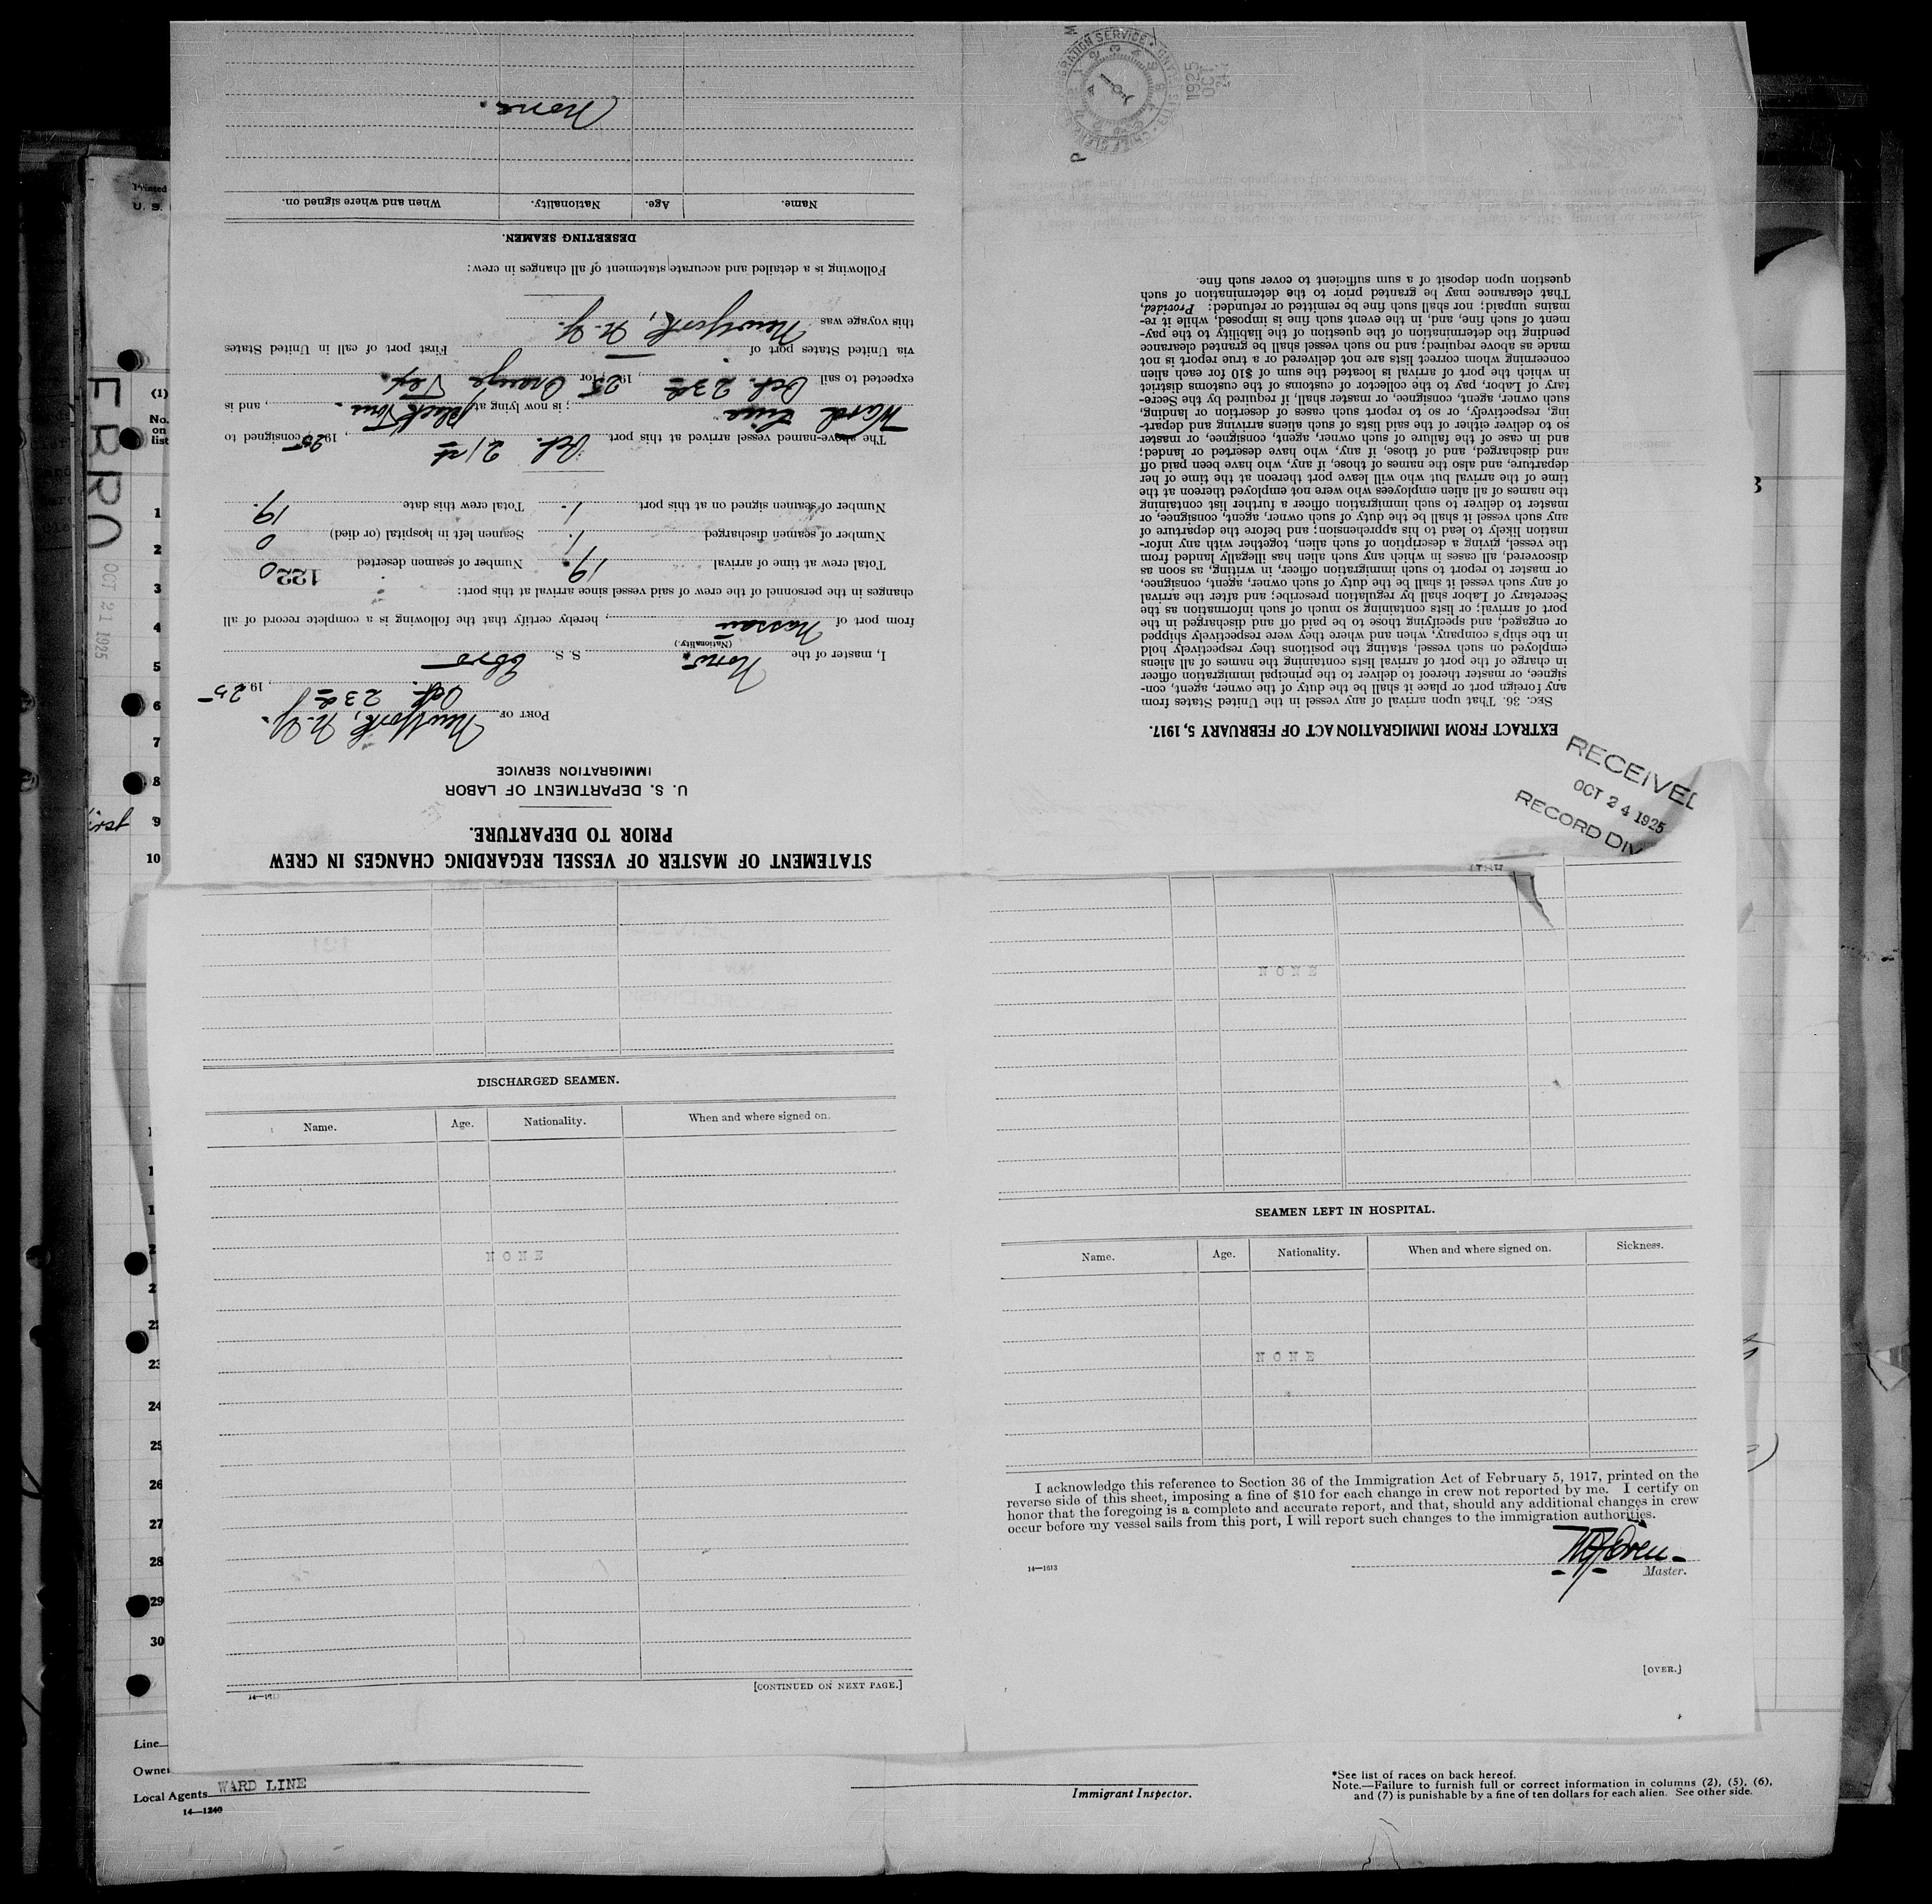 STATEMENT OF MASTER OF VESSEL REGARDING CHANGES IN CREW
PRIOR TO DEPARTURE.
U. S. DEPARTMENT OF LABOR
IMMIGRATION SERVICE
PORT OF New York, N.Y.
Oct. 23rd, 1925
I, master of the Norw. S. S. Ebro
(Nationality.)
from port of Nassau, hereby certify that the following is a complete record of all
changes in the personnel of the crew of said vessel since arrival at this port:
Total crew at time of arrival 19. Number of seamen deserted 0
122
Number of seamen discharged 1. Seamen left in hospital (or died) 0
Number of seamen signed on at this port 1. Total crew this date 19.
The above-named vessel arrived at this port Oct. 21st, 1925, consigned to
Ward Line; is now lying at Black Tom., and is
expected to sail Oct. 23rd, 1925 for Orange Tex.
via United States port of First port of call in United States
this voyage was New York, N.Y.
Following is a detailed and accurate statement of all changes in crew:
DESERTING SEAMEN.
Name. Age. Nationality. When and where signed on.
None.
EXTRACT FROM IMMIGRATION ACT OF FEBRUARY 5, 1917.
SEC. 36. That upon arrival of any vessel in the United States from
any foreign port or place it shall be the duty of the owner, agent, con-
signee, or master thereof to deliver to the principal immigration officer
in charge of the port of arrival lists containing the names of all aliens
employed on such vessel, stating the positions they respectively hold
in the ship's company, when and where they were respectively shipped
or engaged, and specifying those to be paid off and discharged in the
port of arrival; or lists containing so much of such information as the
Secretary of Labor shall by regulation prescribe; and after the arrival
of any such vessel it shall be the duty of such owner, agent, consignee,
or master to report to such immigration officer, in writing, as soon as
discovered, all cases in which any such alien has illegally landed from
the vessel, giving a description of such alien, together with any infor-
mation likely to lead to his apprehension; and before the departure of
any such vessel it shall be the duty of such owner, agent, consignee, or
master to deliver to such immigration officer a further list containing
the names of all alien employees who were not employed thereon at the
time of the arrival but who will leave port thereon at the time of her
departure, and also the names of those, if any, who have been paid off
and discharged, and of those, if any, who have deserted or landed;
and in case of the failure of such owner, agent, consignee, or master
so to deliver either of the said lists of such aliens arriving and depart-
ing, respectively, or so to report such cases of desertion or landing,
such owner, agent, consignee, or master, shall, if required by the Secre-
tary of Labor, pay to the collector of customs of the customs district
in which the port of arrival is located the sum of $10 for each alien
concerning whom correct lists are not delivered or a true report is not
made as above required; and no such vessel shall be granted clearance
pending the determination of the question of the liability to the pay-
ment of such fine, and, in the event such fine is imposed, while it re-
mains unpaid; nor shall such fine be remitted or refunded: Provided,
That clearance may be granted prior to the determination of such
question upon deposit of a sum sufficient to cover such fine.
RECEIVED
OCT 24 1925
RECORD DIV
1925
OCT
24
EBRO
OCT 21 1925
NONE
DISCHARGED SEAMEN.
Name. Age. Nationality. When and where signed on.
NONE
[CONTINUED ON NEXT PAGE.]
SEAMEN LEFT IN HOSPITAL.
Name. Age. Nationality. When and where signed on. Sickness.
NONE
I acknowledge this reference to Section 36 of the Immigration Act of February 5, 1917, printed on the
reverse side of this sheet, imposing a fine of $10 for each change in crew not reported by me. I certify on
honor that the foregoing is a complete and accurate report, and that, should any additional changes in crew
occur before my vessel sails from this port, I will report such changes to the immigration authorities.
Master.
14—1613
[OVER.]
Printed
U. S.
(1)
No.
on
list
1
2
3
4
5
6
7
8
9
10
23
24
25
26
27
28
29
30
Line
Owner
Local Agents WARD LINE
14—1240
Immigrant Inspector.
*See list of races on back hereof.
Note.—Failure to furnish full or correct information in columns (2), (5), (6),
and (7) is punishable by a fine of ten dollars for each alien. See other side.